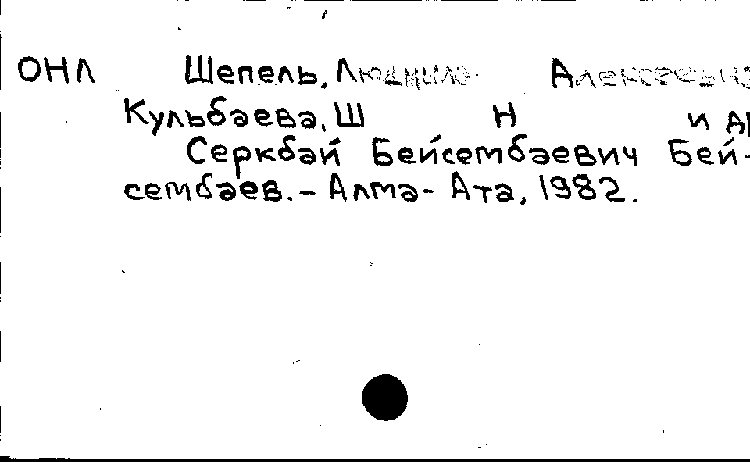 ОНЛ Шепель, Людмила Алексеевна
Кульбаева, Ш Н и др
Серкбай Бейсембаевич Бей-
сембаев. - Алма-Ата, 1982.